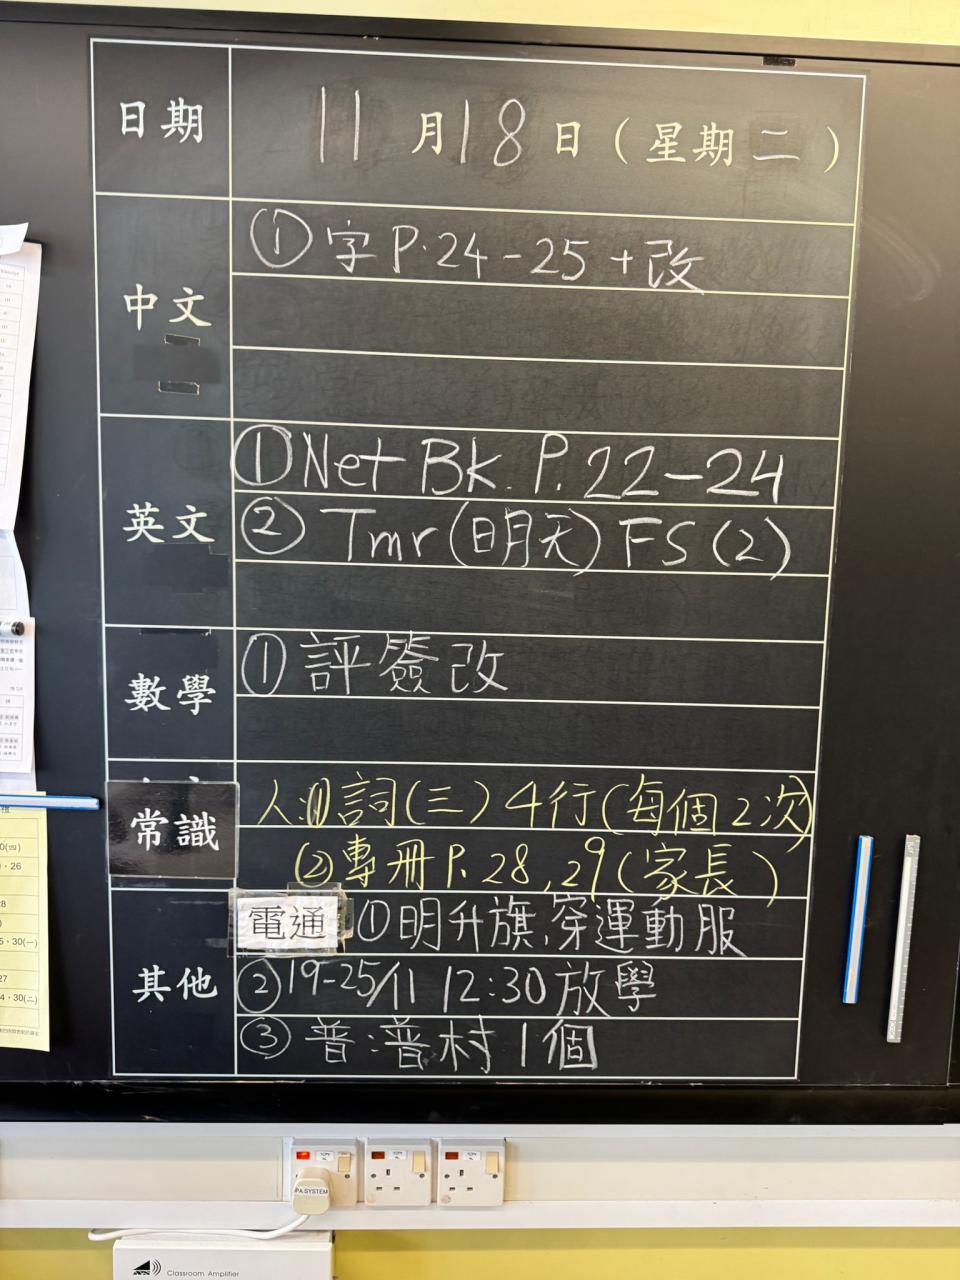 日期 11月18日(星期二)
中文 ①字P.24-25+改
英文 ①Net Bk. P.22-24
②Tmr(明天)FS(2)
數學 ①評簽改
常識 人:①詞(三)4行(每個2次)
②專冊P.28,29(家長)
其他 電通 ①明升旗,穿運動服
②19-25/11 12:30放學
③普:普村1個
PA SYSTEM
Classroom Amplifier